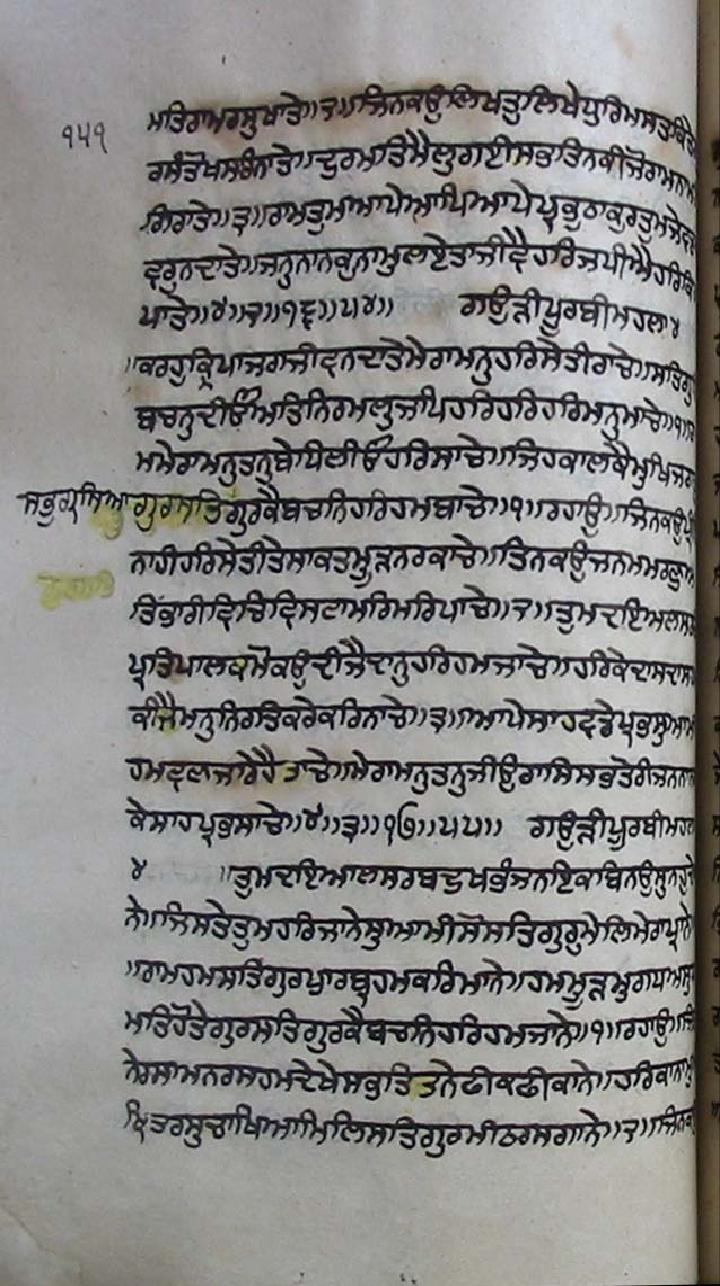 ੧੫੧
ਮਤਿਰਾਮਰਸੁਖਾਤੇ॥੨॥ਜਿਨਕਉਲਿਖਤੁਲਿਖੇਧੁਰਿਮਸਤਕਿਤੇ
ਰਸੰਤੋਖਸਰਿਨਾਤੇ॥ਦੁਰਮਤਿਮੈਲੁਗਈਸਭਤਿਨਕੀਜੋਰਾਮਨਾਮ
ਗਿਰਾਤੇ॥੩॥ਰਾਮਤੁਮਆਪੇਆਪਿਆਪੇਪ੍ਰਭੁਠਾਕੁਰਤੁਮਜੇਵਡ
ਵਰੁਨਦਾਤੇ॥ਜਨੁਨਾਨਕੁਨਾਮੁਲਏਤਾਜੀਵੈਹਰਿਜਪੀਐਹਰਿਕਿ
ਪਾਤੇ॥੪॥੨॥੧੬॥੫੪॥ ਗਉੜੀਪੂਰਬੀਮਹਲਾ੪
॥ਕਰਹੁਕ੍ਰਿਪਾਜਗਜੀਵਨਦਾਤੇਮੇਰਾਮਨੁਹਰਿਸੇਤੀਰਾਚੇ॥ਸਤਿਗੁ
ਬਚਨੁਦੀਓਅਤਿਨਿਰਮਲੁਜਪਿਹਰਿਹਰਿਹਰਿਮਨੁਮਾਚੇ॥੧॥ਰ
ਮਮੇਰਾਮਨੁਤਨੁਬੇਧਿਲੀਓਹਰਿਸਾਚੇ॥ਜਿਹਕਾਲਕੈਮੁਖਿਜਗ
ਸਭੁਗ੍ਰਸਿਆਗੁਰਸਤਿਗੁਰਕੈਬਚਨਿਹਰਿਹਮਬਾਚੇ॥੧॥ਰਹਾਉ॥ਜਿਨਕਉਪ੍ਰੀ
ਨਾਹੀਹਰਿਸੇਤੀਤੇਸਾਕਤਮੂੜਨਰਕਾਚੇ॥ਤਿਨਕਉਜਨਮਮਰਣੁਅ
ਤਿਭਾਰੀਵਿਚਿਵਿਸਟਾਮਰਿਮਰਿਪਾਚੇ॥੨॥ਤੁਮਦਇਆਲਸਰ
ਪ੍ਰਤਿਪਾਲਕਮੋਕਉਦੀਜੈਦਾਨੁਹਰਿਹਮਜਾਚੇ॥ਹਰਿਕੇਦਾਸਦਾਸ
ਕੀਜੈਮਨੁਨਿਰਤਿਕਰੇਕਰਿਨਾਚੇ॥੩॥ਆਪੇਸਾਹਵਡੇਪ੍ਰਭਸੁਆਮੀ
ਹਮਵਣਜਾਰੇਹੈਤਾਚੇ॥ਮੇਰਾਮਨੁਤਨੁਜੀਉਰਾਸਿਸਭਤੇਰੀਜਨਨਾਨ
ਕੇਸਾਹਪ੍ਰਭਸਾਚੇ॥੪॥੩॥੧੭॥੫੫॥ ਗਉੜੀਪੂਰਬੀਮਹਲਾ
੪ ॥ਤੁਮਦਇਆਲਸਰਬਦੁਖਭੰਜਨਇਕਬਿਨਉਸੁਨਹੁਦੇ
ਨੇ॥ਜਿਸਤੇਤੁਮਹਰਿਜਾਨੇਸੁਆਮੀਸੋਸਤਿਗੁਰੁਮੇਲਿਮੇਰਾਪ੍ਰਾਨੇ
॥ਰਾਮਹਮਸਤਿਗੁਰਪਾਰਬ੍ਰਹਮਕਰਿਮਾਨੇ॥ਹਮਮੂੜਮੁਗਧਅਸੁਧ
ਮਤਿਹੋਤੇਗੁਰਸਤਿਗੁਰਕੈਬਚਨਿਹਰਿਹਮਜਾਨੇ॥੧॥ਰਹਾਉ॥ਜਿ
ਨੇਰਸਅਨਰਸਹਮਦੇਖੇਸਭਤਿਤਨੇਫੀਕਫੀਕਾਨੇ॥ਹਰਿਕਾਨਾਮੁ
ਮ੍ਰਿਤਰਸੁਚਾਖਿਆਮਿਲਿਸਤਿਗੁਰਮੀਠਰਸਗਾਨੇ॥੨॥ਜਿਨਕ